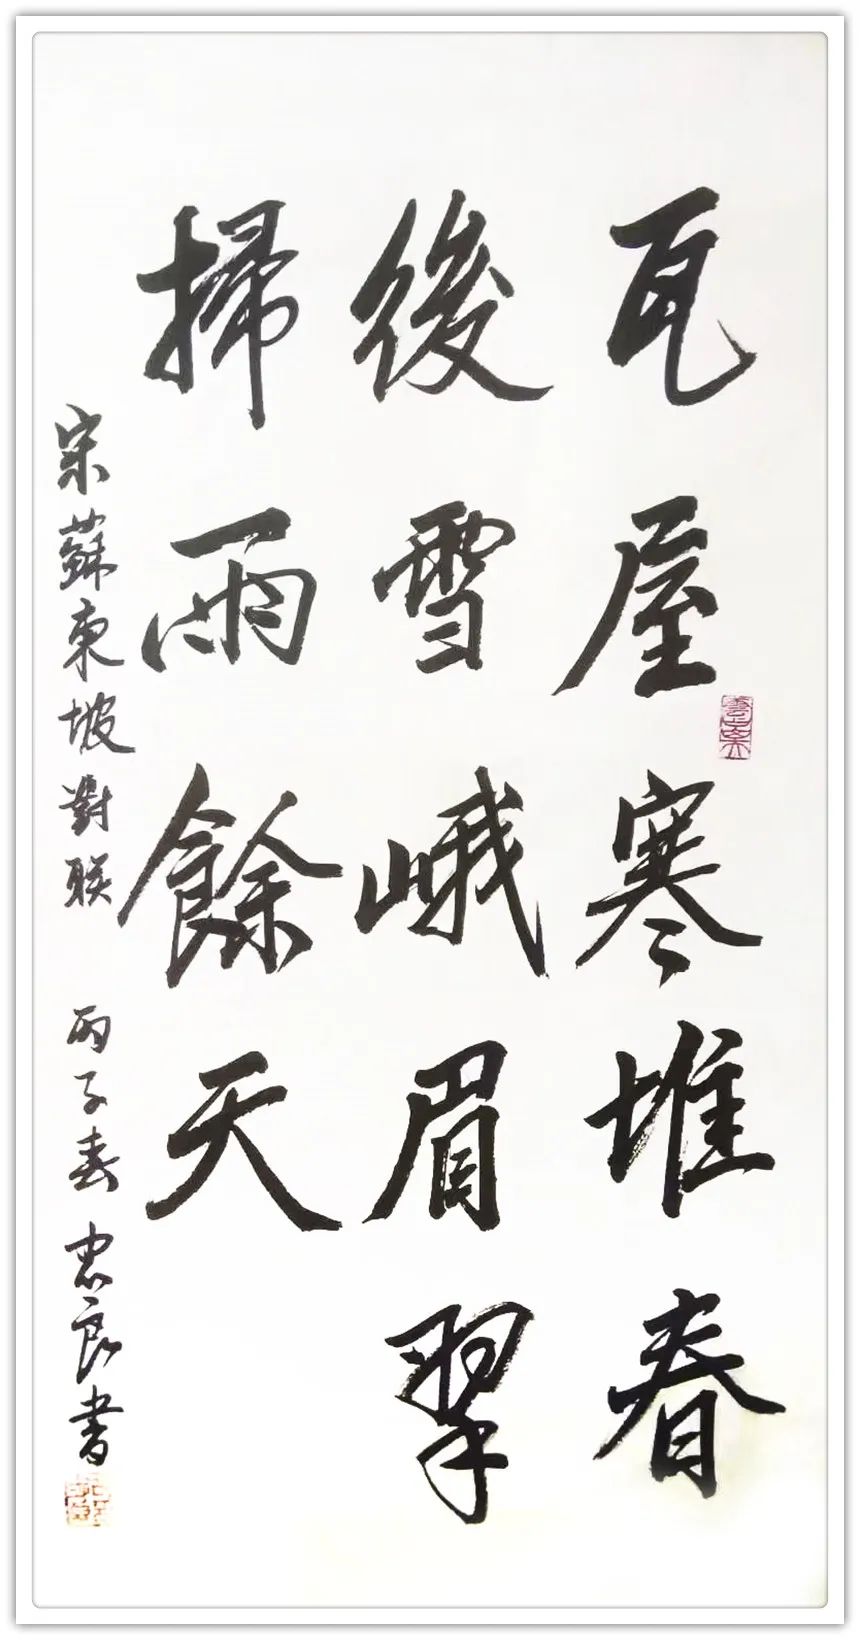 瓦屋寒堆春
後雪峨眉翠
掃雨餘天
宋蘇東坡對联 丙子春忠良書